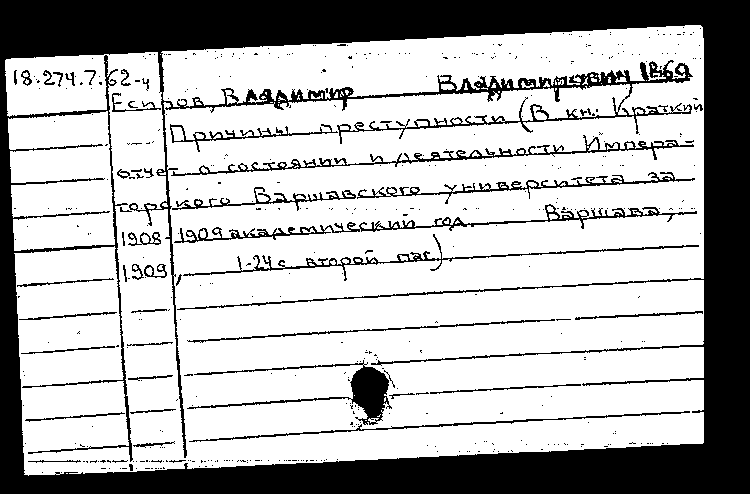 18.274.7.62-4
Есипов, Владимир Владимирович, 1869
Причины преступности (В кн.: Краткий
отчет о состоянии и деятельности Импера-
торского Варшавского университета за
1908-1909 академический год. Варшава,
1909, 1-24 с второй паг.).